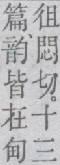 徂悶切。十三
篇、韵皆在甸